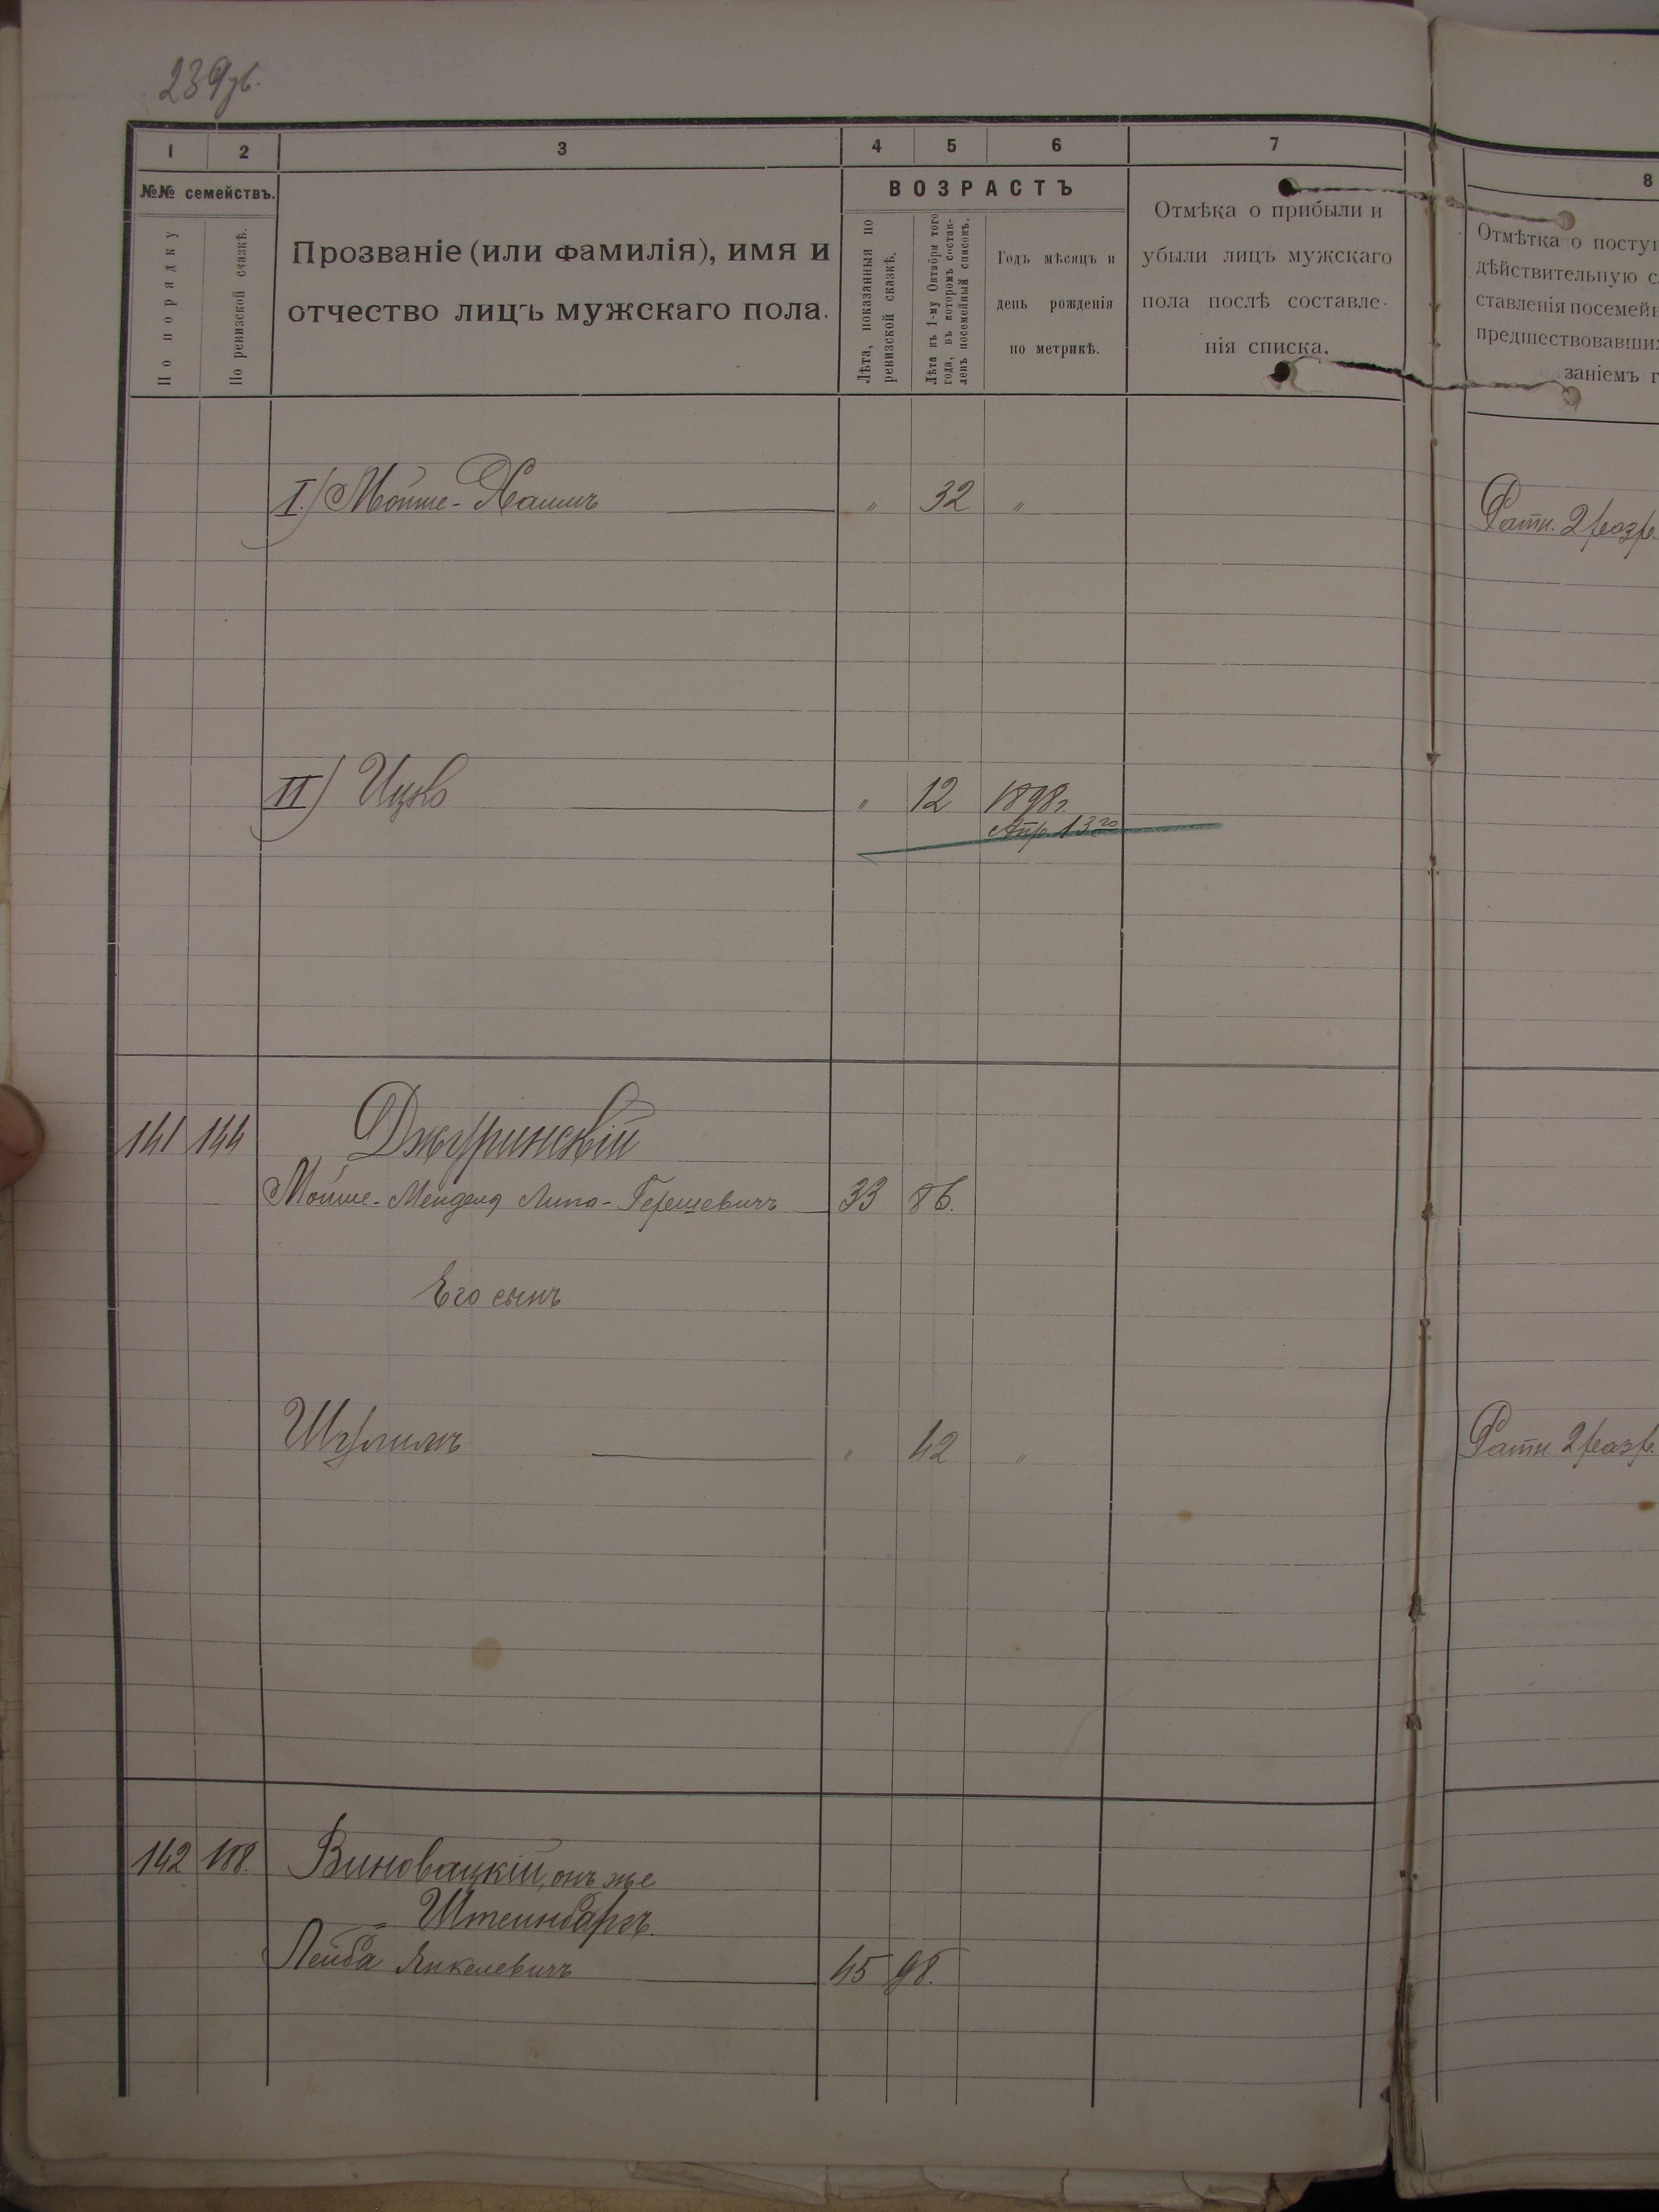 239об.
1 2 3 4 5 6 7 8
№№ семействъ.
По порядку
По ревизской сказкѣ.
Прозваніе (или фамилія), имя и
отчество лицъ мужскаго пола.
ВОЗРАСТЪ
Лѣта, показанныя по
ревизской сказкѣ.
Лѣта къ 1-му Октября того
года, въ которомъ состав-
ленъ посемейный списокъ.
Годъ мѣсяцъ и
день рожденія
по метрикѣ.
Отмѣка о прибыли и
убыли лицъ мужскаго
пола послѣ составле-
нія списка.
Отмѣтка о поступ
дѣйствительную с
ставленія посемейн
предшествовавши
заніемъ г
I) Мойше-Хаимъ " 32 "
Ратн. 2 разр.
II) Ицко " 12 1898г.
Апр. 13го
141 144 Джуринскій
Мойше-Мендель Липа-Гершевичъ 33 86.
Его сынъ
Шулимъ " 42 "
Ратн 2 разр.
142 188. Виновацкій, онъ же
Штейнбаргъ.
Лейба Янкелевичъ 45 98.